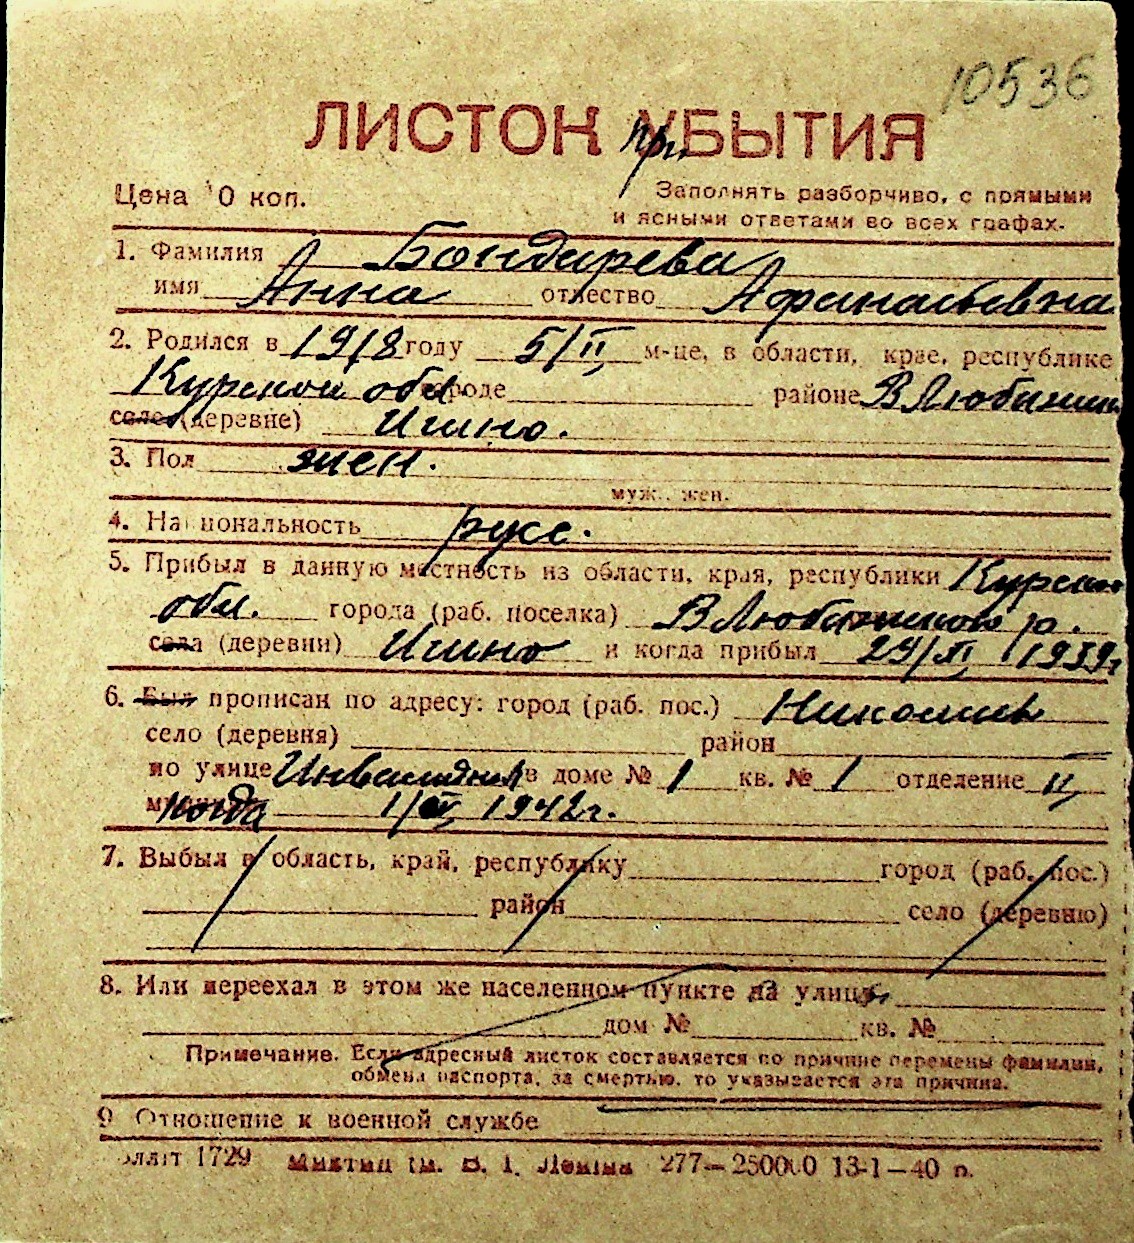 10536
ЛИСТОК при УБЫТИЯ
Цена 10 коп.
Заполнять разборчиво, с прямыми
и ясными ответами во всех графах.
1. Фамилия Бондарева
имя Анна отчество Афанасьевна
2. Родился в 1918 году 5/II м-це, в области, крае, республике
Курской обл городе районе ВЛюбажин
селе (деревне) Игино.
3. Пол жен.
муж., жен.
4. Национальность русс.
5. Прибыл в данную местность из области, края, республики Курской
обл. города (раб. поселка) ВЛюбажинов р.
села (деревни) Игино и когда прибыл 29/XI 1939г
6. Был прописан по адресу: город (раб. пос.)
село (деревня) район
по улице Инвалидная в доме № 1 кв. № 1 отделение II,
когда 1942г.
7. Выбыл в область, край, республику город (раб. пос.)
район село (деревню)
8. Или переехал в этом же населенном пункте на улицу
дом № кв. №
Примечание. Если адресный листок составляется по причине перемены фамилии,
обмена паспорта, за смертью, то указывается эта причина.
9 Отношение к военной службе
1729 им. В. І. Леніна 277—250000 13-1—40 р.